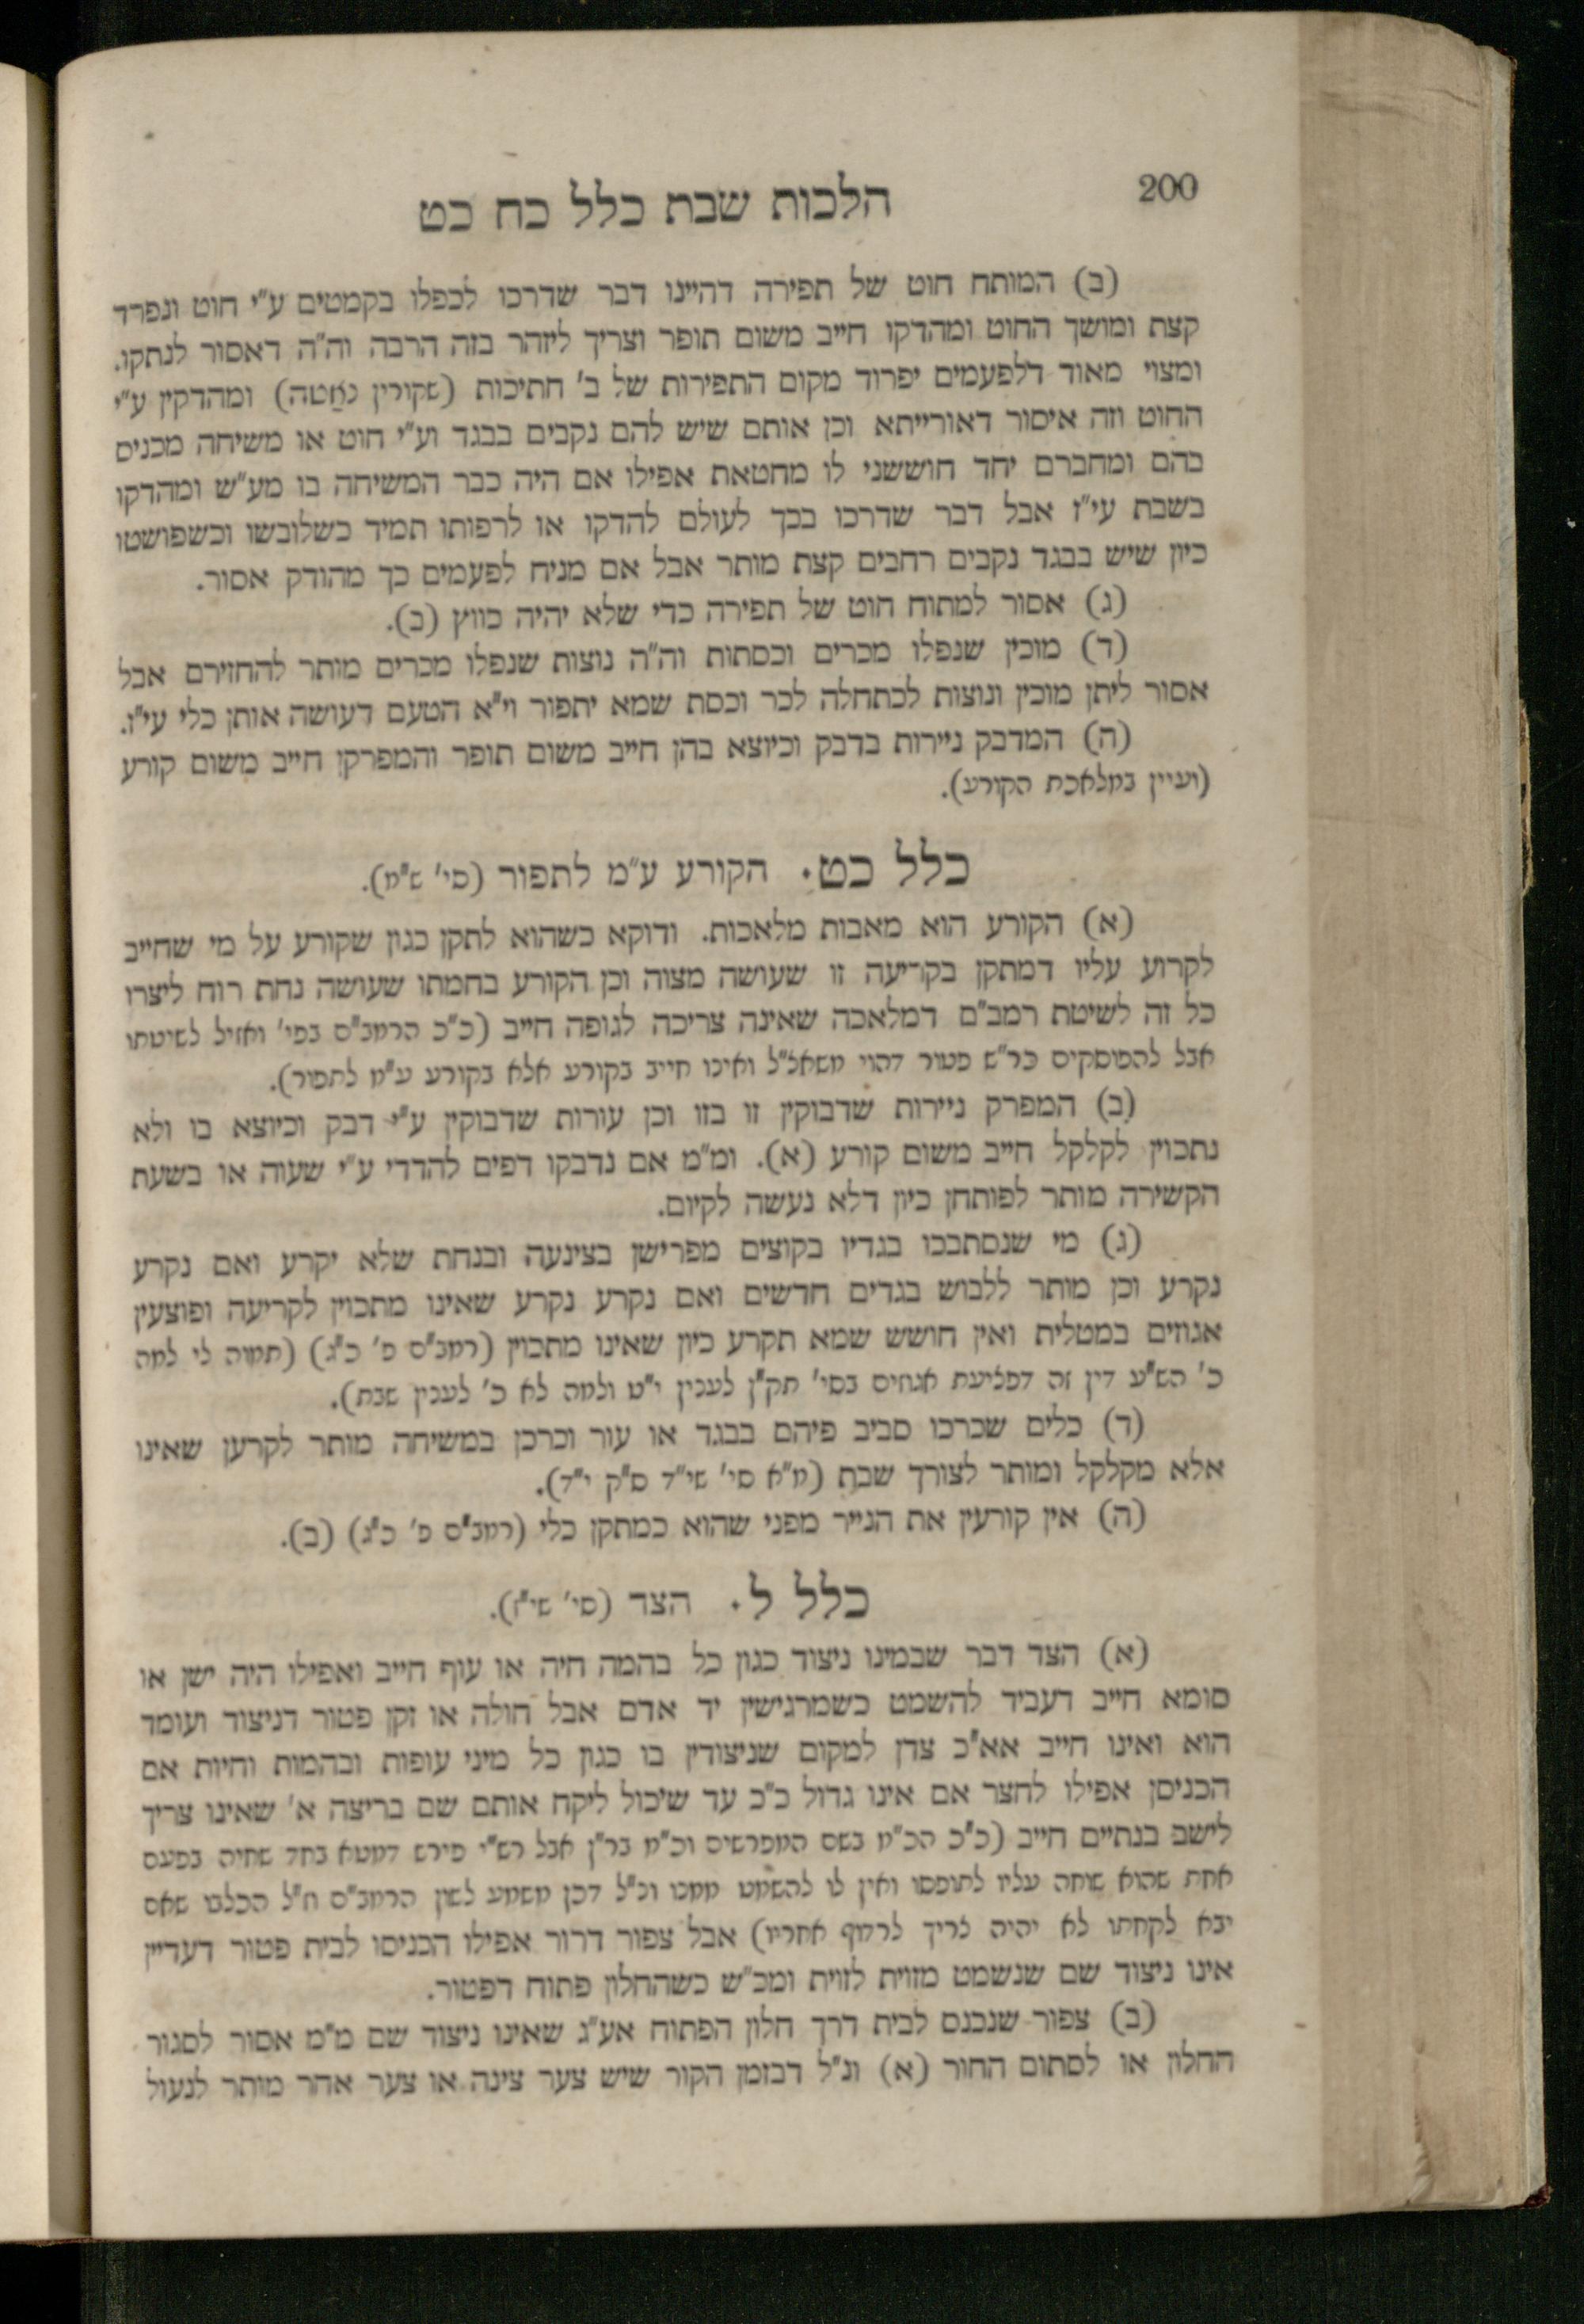 200
הלכות שבת כלל כח כט
(ב) המותח חוט של תפירה דהיינו דבר שדרכו לכפלו בקמטים ע"י חוט ונפרד
קצת ומושך החוט ומהדקו חייב משום תופר וצריך ליזהר בזה הרבה וה"ה דאסור לנתקו.
ומצוי מאוד דלפעמים יפרוד מקום התפירות של ב' חתיכות (שקורין נאַטה) ומהדקין ע"י
החוט וזה איסור דאורייתא וכן אותם שיש להם נקבים בבגד וע"י חוט או משיחה מכנים
בהם ומחברם יחד חוששני לו מחטאת אפילו אם היה כבר המשיחה בו מע"ש ומהדקו
בשבת עי"ז אבל דבר שדרכו בכך לעולם להדקו או לרפותו תמיד כשלובשו וכשפושטו
כיון שיש בבגד נקבים רחבים קצת מותר אבל אם מניח לפעמים כך מהודק אסור.
(ג) אסור למתוח חוט של תפירה כדי שלא יהיה כווץ (ב).
(ד) מוכין שנפלו מכרים וכסתות וה"ה נוצות שנפלו מכרים מותר להחזירם אבל
אסור ליתן מוכין ונוצות לכתחלה לכר וכסת שמא יתפור וי"א הטעם דעושה אותן כלי עי"ז.
(ה) המדבק ניירות בדבק וכיוצא בהן חייב משום תופר והמפרקן חייב משום קורע
(ועיין במלאכת הקורע).
כלל כט. הקורע ע"מ לתפור (סי' ש"מ).
(א) הקורע הוא מאבות מלאכות. ודוקא כשהוא לתקן כגון שקורע על מי שחייב
לקרוע עליו דמתקן בקריעה זו שעושה מצוה וכן הקורע בחמתו שעושה נחת רוח ליצרו
כל זה לשיטת רמב"ם דמלאכה שאינה צריכה לגופה חייב (כ"כ הרמב"ם בפי' ואזיל לשיטתו
אבל להפוסקים כר"ש פטור דהוי משאצ"ל ואינו חייב בקורע אלא בקורע ע"מ לתפור).
(ב) המפרק ניירות שדבוקין זו בזו וכן עורות שדבוקין ע"י דבק וכיוצא בו ולא
נתכוין לקלקל חייב משום קורע (א). ומ"מ אם נדבקו דפים להדדי ע"י שעוה או בשעת
הקשירה מותר לפותחן כיון דלא נעשה לקיום.
(ג) מי שנסתבכו בגדיו בקוצים מפרישן בצינעה ובנחת שלא יקרע ואם נקרע
נקרע וכן מותר ללבוש בגדים חדשים ואם נקרע נקרע שאינו מתכוין לקריעה ופוצעין
אגוזים במטלית ואין חושש שמא תקרע כיון שאינו מתכוין (רמב"ם פ' כ"ג) (תמוה לי למה
כ' הש"ע דין זה דפציעת אגוזים בסי' תק"ן לענין י"ט ולמה לא כ' לענין שבת).
(ד) כלים שכרכו סביב פיהם בבגד או עור וכרכן במשיחה מותר לקרען שאינו
אלא מקלקל ומותר לצורך שבת (מ"א סי' שי"ד ס"ק י"ד).
(ה) אין קורעין את הנייר מפני שהוא כמתקן כלי (רמב"ם פ' כ"ג) (ב).
כלל ל. הצד (סי' שי"ו).
(א) הצד דבר שבמינו ניצוד כגון כל בהמה חיה או עוף חייב ואפילו היה ישן או
סומא חייב דעביד להשמט כשמרגישין יד אדם אבל חולה או זקן פטור דניצוד ועומד
הוא ואינו חייב אא"כ צדן למקום שניצודין בו כגון כל מיני עופות ובהמות וחיות אם
הכניסן אפילו לחצר אם אינו גדול כ"כ עד שיכול ליקח אותם שם בריצה א' שאינו צריך
לישב בנתיים חייב (כ"כ הכ"מ בשם המפרשים וכ"מ בר"ן אבל רש"י פירש דמטא בחד שחיה בפעם
אחת שהוא שוחה עליו לתופסו ואין לו להשמט ממנו וכ"ל דכן משמע לשון הרמב"ם וז"ל הכלבו שאם
יבא לקחתו לא יהיה צריך לרדוף אחריו) אבל צפור דרור אפילו הכניסו לבית פטור דעדיין
אינו ניצוד שם שנשמט מזוית לזוית ומכ"ש כשהחלון פתוח דפטור.
(ב) צפור שנכנס לבית דרך חלון הפתוח אע"ג שאינו ניצוד שם מ"מ אסור לסגור
החלון או לסתום החור (א) ונ"ל דבזמן הקור שיש צער צינה או צער אחר מותר לנעול